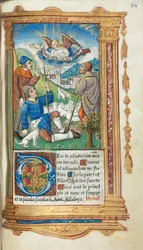 Eus in adiutorium me
um intende. Domine
ad adiuuandum me fe
stina. Gloria patri et
filio et spiritui sancto
Sicut erat in princip
io et nunc et semper
et in secula seculorum. Amen. Alleluya.